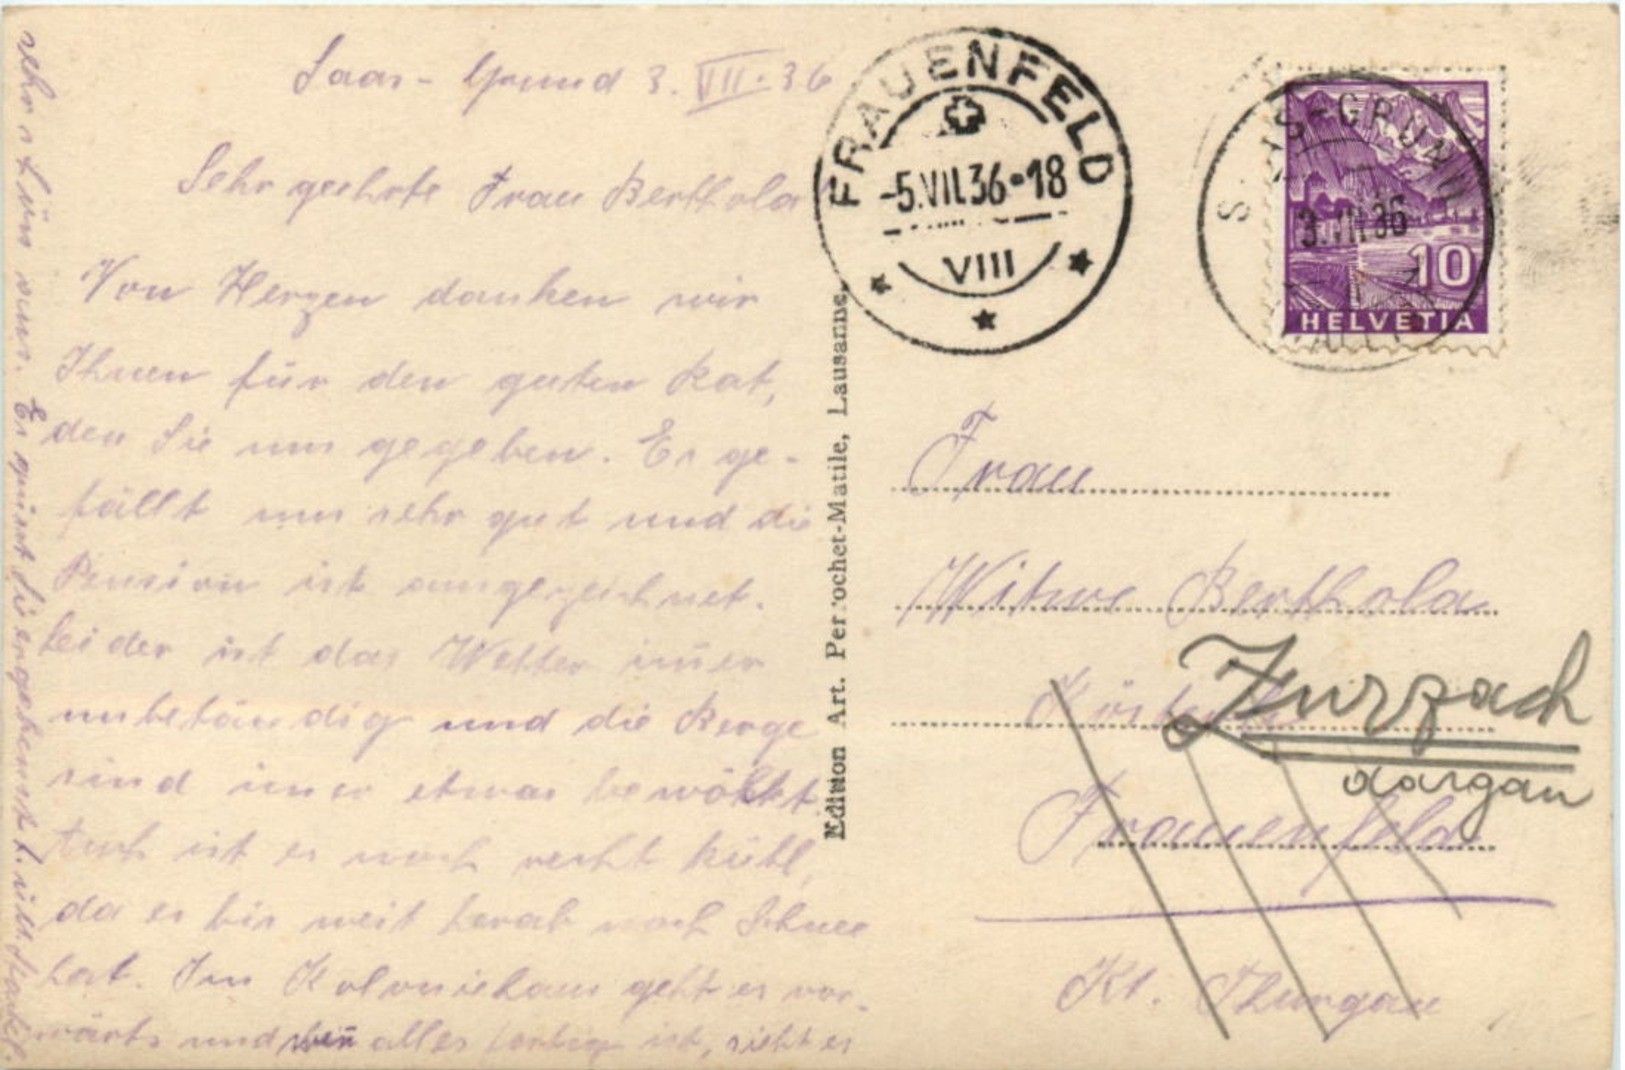 Saas-Grund 3. VII. 36
Sehr geehrte Frau Berthola
Von Herzen danken wir
Ihnen für den guten Rat,
den Sie uns gegeben. Es ge-
fällt uns sehr gut und die
Pension ist ausgezeichnet.
Leider ist das Wetter im̄er
unbetändig und die Berge
sind im̄er etwas bewölkt.
Auch ist es noch recht kühl,
da es bis weit herab noch Schnee
hat. Im Koloniehaus geht es vor-
wärts und wen̄ alles fertig ist, sieht es
sehr schön aus. Es grüsst Sie ergebenst
Edition Art. Perrochet-Matile, Lausanne.
FRAUENFELD
-5.VII.36-18
VIII
S-GRUND
3.VII.36
10
HELVETIA
Frau
Witwe Berthola
Zurzach
Aargau
Frauenfeld
Kt. Thurgau